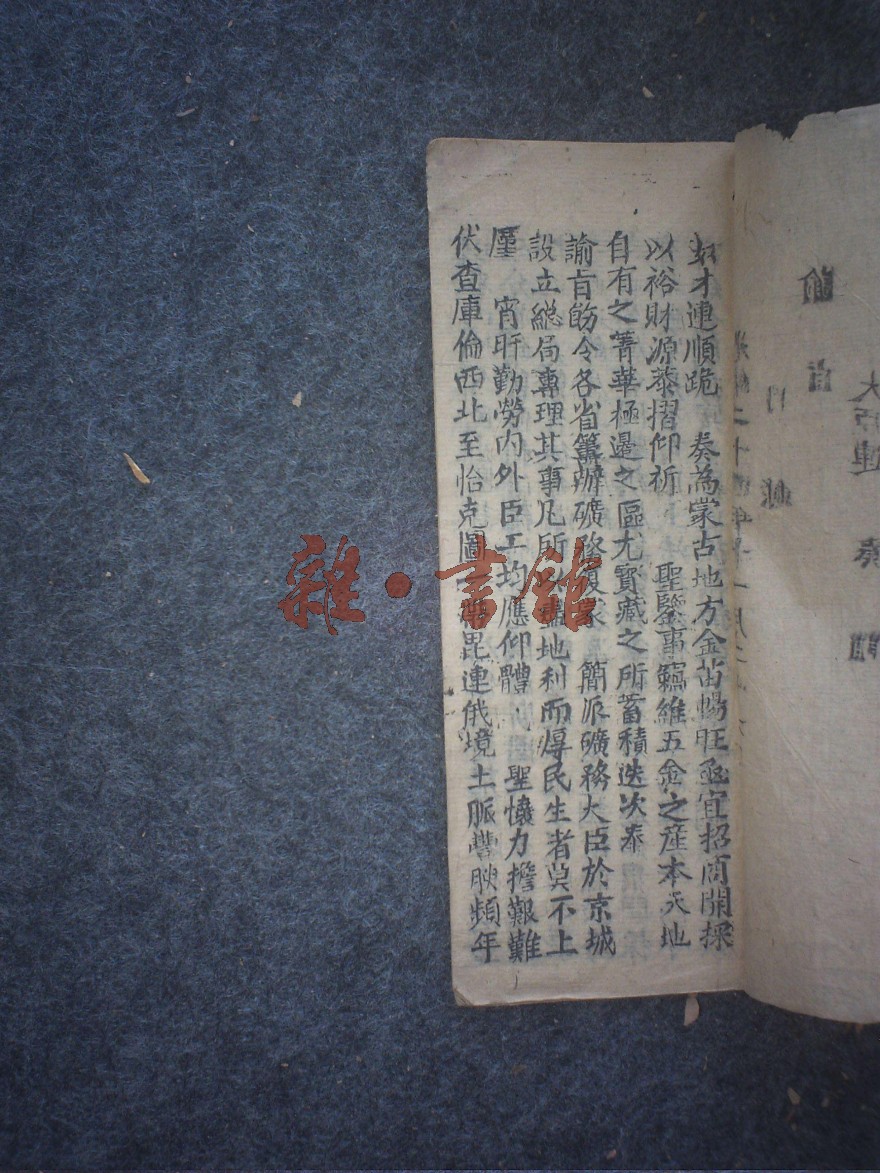 奴才連順跪　奏為蒙古地方金苗暢旺亟宜招商開採
以裕財源恭摺仰祈　聖鑒事竊維五金之産本天地
自有之菁華極邊之區尤寳藏之所蓄積迭次奉
諭旨飭令各省籌辦礦務復蒙　簡派礦務大臣於京城
設立總局專理其事凡所以盡地利而厚民生者莫不上
廑　宵旰勤勞内外臣工均應仰體　聖懷力擔艱難
伏查庫倫西北至恰克圖一帶毘連俄境土脈豐腴頻年
雜·書館